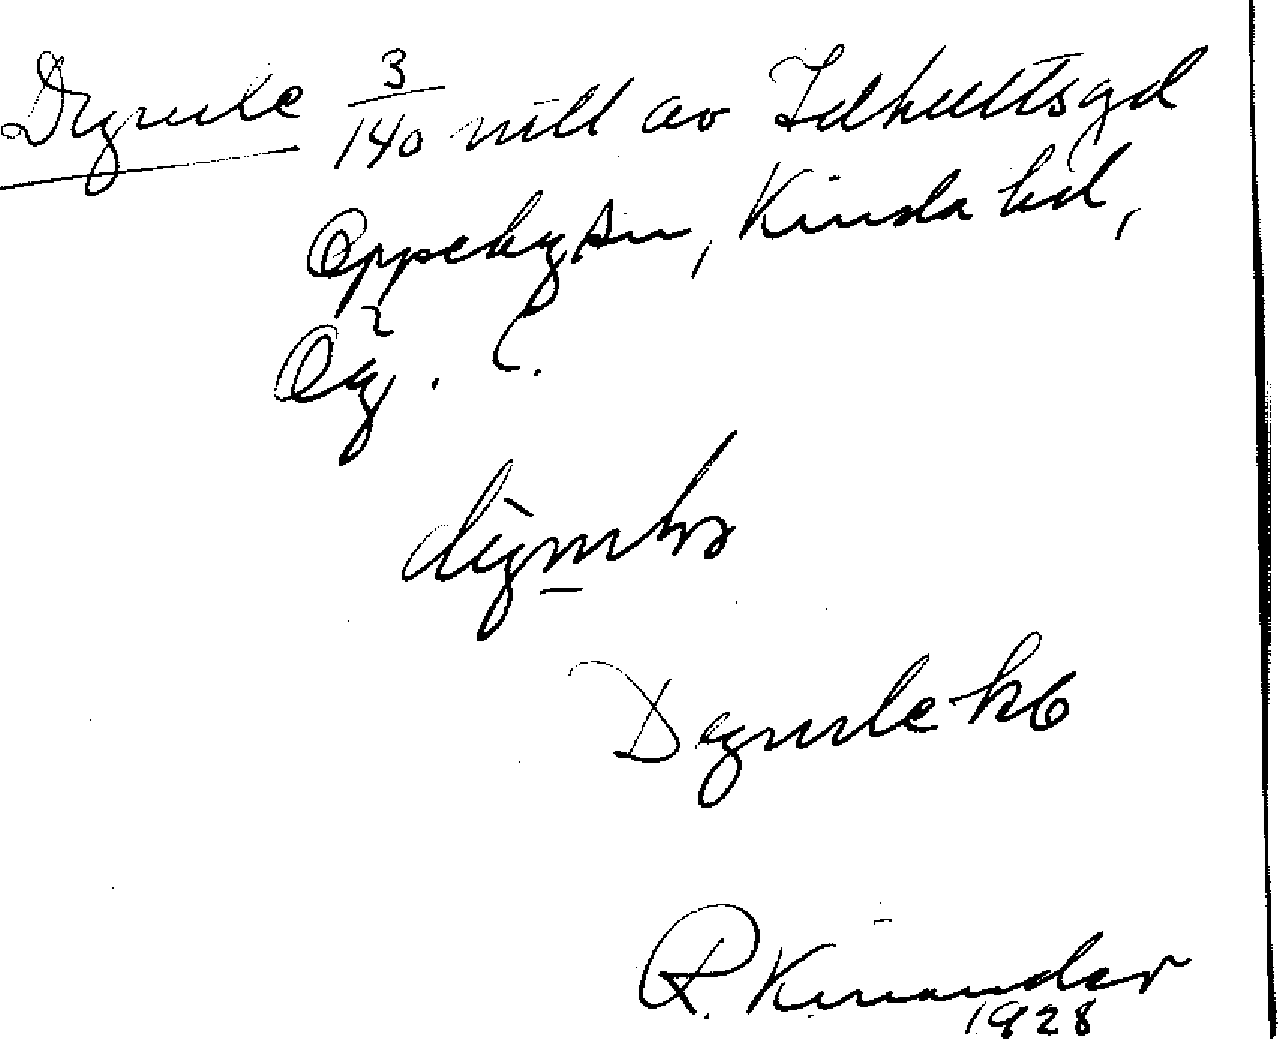 Degrule 3/140 mtl av Idhultsgd
Oppeby sn, Kinda hd,
Ög.
Degrule
R. Kinander
1928